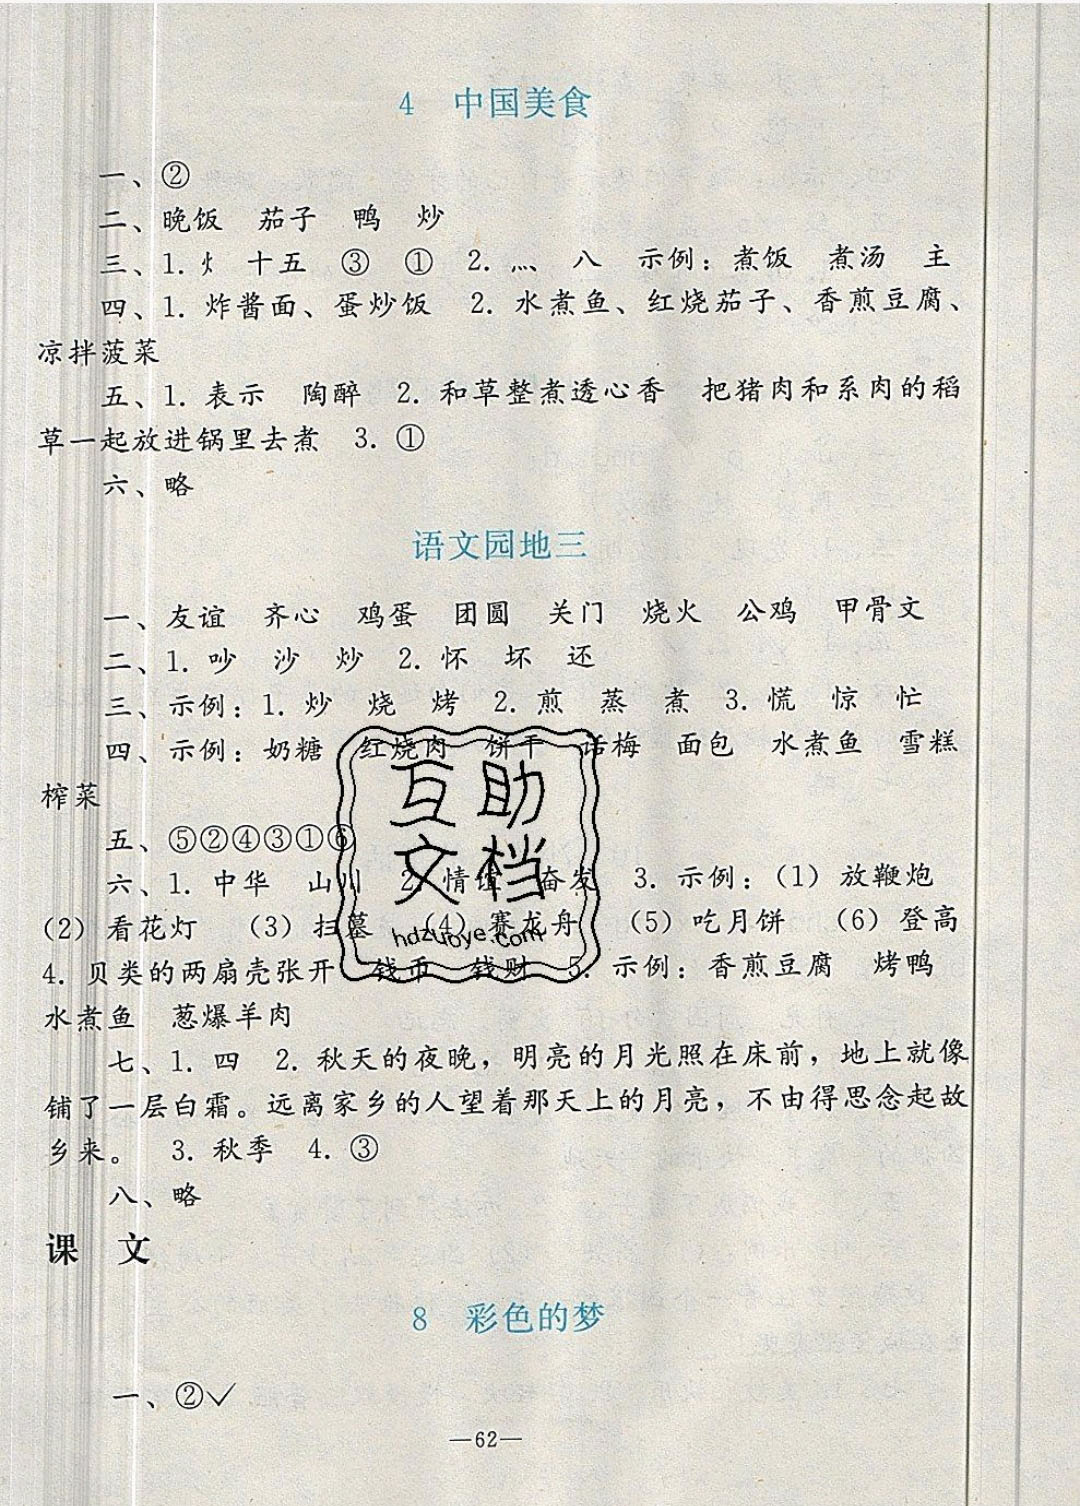 4 中国美食
一、②
二、晚饭 茄子 鸭 炒
三、1. 火 十五 ③ ① 2. 灬 八 示例：煮饭 煮汤 主
四、1. 炸酱面、蛋炒饭 2. 水煮鱼、红烧茄子、香煎豆腐、
凉拌菠菜
五、1. 表示 陶醉 2. 和草整煮透心香 把猪肉和系肉的稻
草一起放进锅里去煮 3. ①
六、略
语文园地三
一、友谊 齐心 鸡蛋 团圆 关门 烧火 公鸡 甲骨文
二、1. 吵 沙 炒 2. 怀 坏 还
三、示例：1. 炒 烧 烤 2. 煎 蒸 煮 3. 慌 惊 忙
四、示例：奶糖 红烧肉 饼干 话梅 面包 水煮鱼 雪糕
榨菜
五、⑤②④③①⑥
六、1. 中华 山川 2. 情谊 奋发 3. 示例：(1) 放鞭炮
(2) 看花灯 (3) 扫墓 (4) 赛龙舟 (5) 吃月饼 (6) 登高
4. 贝类的两扇壳张开 钱币 钱财 5. 示例：香煎豆腐 烤鸭
水煮鱼 葱爆羊肉
七、1. 四 2. 秋天的夜晚，明亮的月光照在床前，地上就像
铺了一层白霜。远离家乡的人望着那天上的月亮，不由得思念起故
乡来。 3. 秋季 4. ③
八、略
课 文
8 彩色的梦
一、②✓
—62—
互助
文档
hdzuoye.com